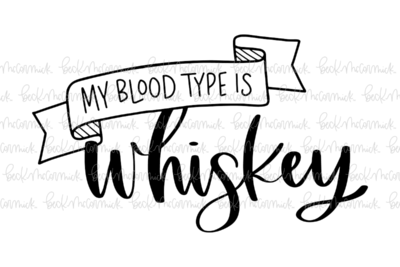 MY BLOOD TYPE IS
whiskey